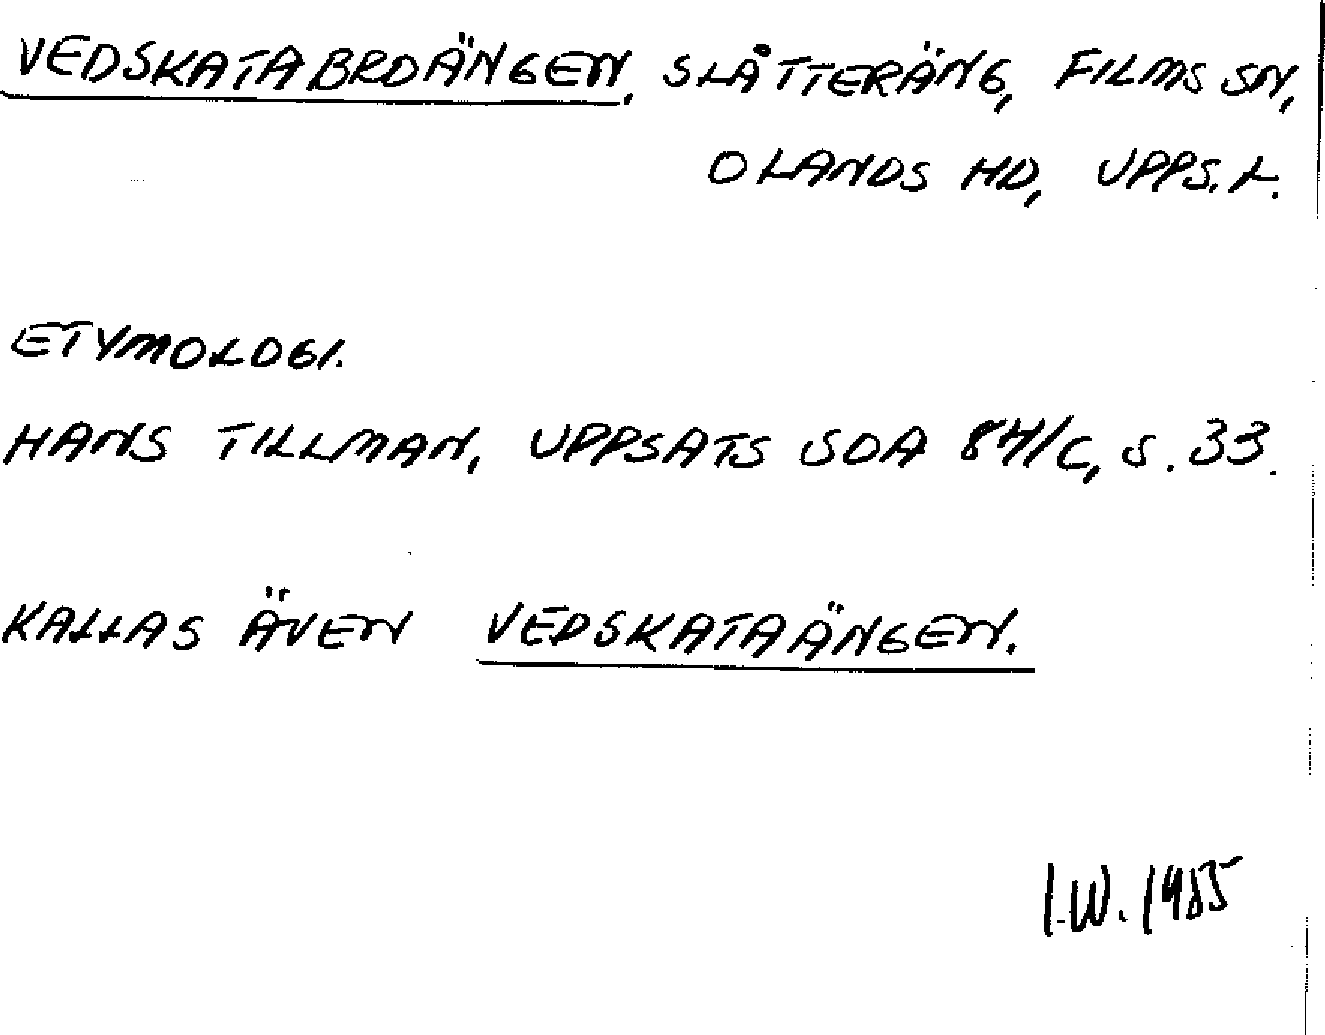 VEDSKATABROÄNGEN, SLÅTTERÄNG, FILMS SN,
OLANDS HD, UPPS. L.
ETYMOLOGI.
HANS TILLMAN, UPPSATS SOA 84/C, S. 33.
KALLAS ÄVEN VEDSKATAÄNGEN.
I.W. 1985